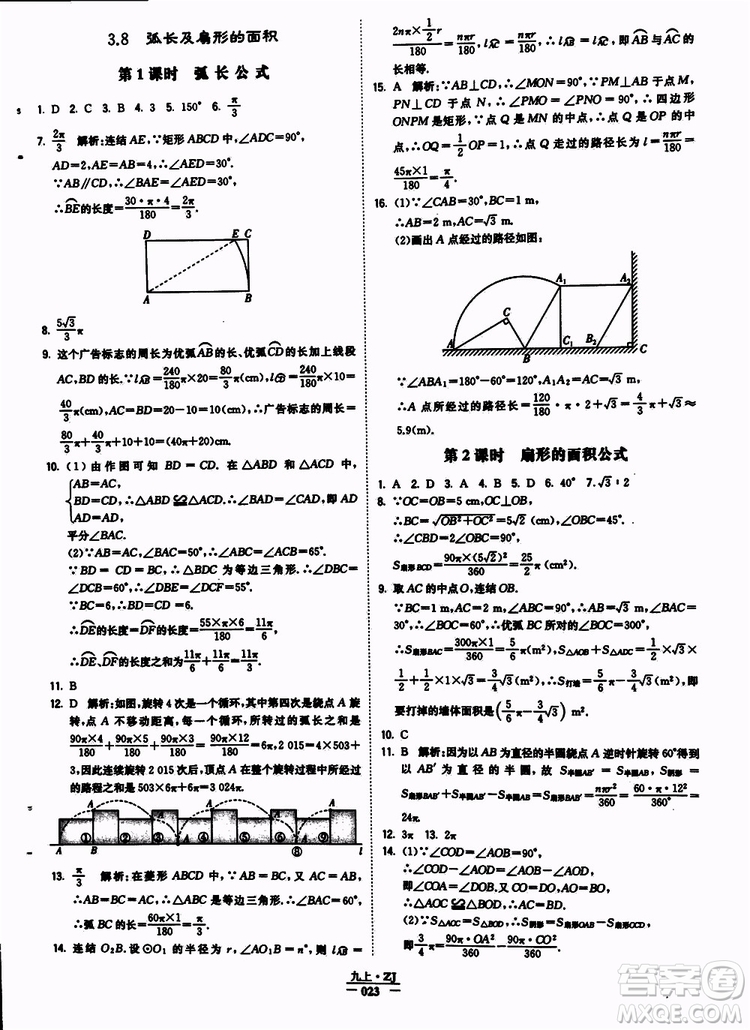 3.8 弧长及扇形的面积
第1课时 弧长公式
1. D 2. C 3. B 4. 3 5. 150° 6. π/3
7. 2π/3 解析:连结AE,∵矩形ABCD中,∠A=90°,
AD=2,AE=AB=4,∴∠AED=30°.
∵AB∥CD,∴∠BAE=∠AED=30°.
∴B͡E的长度=30·π·4/180=2π/3.
D E C
A B
8. 5√3/3 π
9. 这个广告标志的周长为优弧AB的长、优弧CD的长加上线段
10. (1)由作图可知BD=CD.在△ABD和△ACD中,
AB=AC,
BD=CD,∴△ABD≌△ACD,∴∠BAD=∠CAD,即AD
AD=AD,
平分∠BAC.
(2)∵AB=AC,∠BAC=50°,∴∠ABC=∠ACB=65°.
∵BD=CD=BC,∴△BDC为等边三角形.∴∠DBC=
∠DCB=60°,∴∠DBE=∠DCF=55°.
∵BC=6,∴BD=CD=6.
∴D͡E的长度=D͡F的长度=55×π×6/180=11π/6.
∴D͡E、D͡F的长度之和为11π/6+11π/6=11π/3.
11. B
12. D 解析:如图,旋转4次是一个循环,其中第四次是绕点A旋
转,点A不移动距离,每一个循环,所转过的弧长之和是
90π×4/180+90π×5/180+90π×3/180=6π,2 015=4×503+
3,因此连续旋转2 015次后,顶点A在整个旋转过程中所经过
的路程之和是503×6π+6π=3 024π.
A A A
① ② ③ ④ ⑤ ⑥ ⑦ ⑨
A B A A ⑧ l
13. π/3 解析:在菱形ABCD中,∵AB=BC,又AC=AB,
∴AB=BC=AC,∴△ABC为等边三角形,∴∠BAC=60°,
∴弧BC的长为60π×1/180=π/3.
14. 连结O₂B.设⊙O₁的半径为r,∠AO₁B=n°,则
长相等.
15. A 解析:∵AB⊥CD,∴∠MON=90°,∵PM⊥AB于点M,
PN⊥CD于点N,∴∠PMO=∠PNO=90°,∴四边形
ONPM是矩形,∵点Q是MN的中点,∴点Q是OP的中
点,∴OQ=1/2 OP=1,∴点Q走过的路径长l=nπr/180=
45π×1/180=π/4.
16. (1)∵∠CAB=30°,BC=1 m,
∴AB=2 m,AC=√3 m.
(2)画出A点经过的路径如图:
A₁ A₂
C
A B C₁ B₂ C
∵∠ABA₁=180°-60°=120°,A₁A₂=AC=√3 m,
∴A点所经过的路径长=120/180×π×2+√3=4/3π+√3≈
5.9(m).
第2课时 扇形的面积公式
1. A 2. D 3. A 4. B 5. D 6. 40° 7. √3∶2
8. ∵OC=OB=5 cm,OC⊥OB,
∴BC=√(OB²+OC²)=5√2(cm),∠OBC=45°,
∴∠CBD=2∠OBC=90°,
∴S扇形BCD=90π×(5√2)²/360=25/2 π(cm²).
9. 取AC的中点O,连结OB.
∵BC=1 m,AC=2 m,∠ABC=90°,
∴∠ACB=60°,AB=√3 m,∴优弧BC所对的∠BOC=
∴S扇形BAC=300π×1/360=5/6 π(m²),S△AOB=
1/2×1/2×1×√3=√3/4(m²),∴S打墙=(5/6π-3/4√3)(m²),即
要打掉的墙体面积为(5/6π-3/4√3)m².
10. C
11. B 解析:∵以AB为直径的半圆绕点A逆时针旋转60°得到
以AB′为直径的半圆,故S半圆AB′=S半圆AB,∴S阴影=
S扇形BAB′+S半圆AB′-S半圆AB=S扇形BAB′=nπR²/360=60·π·12²/360=
24π.
12. 3π 13. 2π
14. (1)∵∠COD=∠AOB=90°,
∴∠COD-∠AOD=∠AOB-∠AOD,
即∠COA=∠DOB.又OC=OD,AO=BO,
∴△AOC≌△BOD.
(2)∵S△AOC=S△BOD,∴S阴影=S扇形AOB-S扇形COD,即
3/4π=90π·OA²/360-90π·OC²/360,∴OC=1 cm.
九上·ZJ
023
答案圈
MXQE.COM